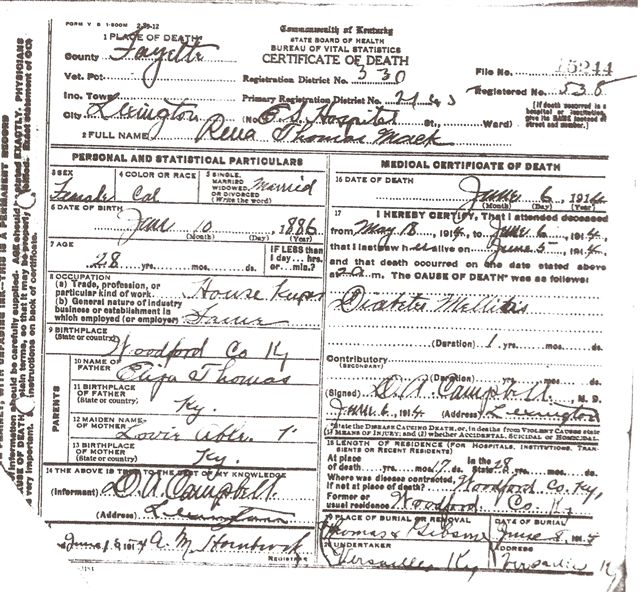 FORM V. S. 1-500M 2-29-12
Commonwealth of Kentucky
STATE BOARD OF HEALTH
BUREAU OF VITAL STATISTICS
CERTIFICATE OF DEATH
1 PLACE OF DEATH
County Fayette
Vet. Pct.
Inc. Town
City Lexington
Registration District No. 330
Primary Registration District No.
(No. Hospital St., Ward)
File No. 15244
Registered No. 538
(If death occurred in a hospital or institution, give its NAME instead of street and number.)
2 FULL NAME Rena Thomas Mack
PERSONAL AND STATISTICAL PARTICULARS
3 SEX Female
4 COLOR OR RACE Col
5 SINGLE, MARRIED, WIDOWED, OR DIVORCED (Write the word) Married
6 DATE OF BIRTH
Jan 10, 1886
(Month) (Day) (Year)
7 AGE
28 yrs. mos. ds.
IF LESS than 1 day... hrs. or... min.?
8 OCCUPATION
(a) Trade, profession, or particular kind of work. House Keeper
(b) General nature of industry business or establishment in which employed (or employer) Same
9 BIRTHPLACE
(State or country) Woodford Co Ky
PARENTS
10 NAME OF FATHER Elija Thomas
11 BIRTHPLACE OF FATHER (State or country) Ky.
12 MAIDEN NAME OF MOTHER
13 BIRTHPLACE OF MOTHER (State or country) Ky.
14 THE ABOVE IS TRUE TO THE BEST OF MY KNOWLEDGE
(Informant) Campbell
(Address) Lexington
June 1914 A. M. Hornbrook
REGISTRAR
MEDICAL CERTIFICATE OF DEATH
16 DATE OF DEATH
June 6, 1914
(Month) (Day) (Year)
17 I HEREBY CERTIFY, That I attended deceased
from May 18, 1914, to June 6, 1914,
that I last saw her alive on June 5, 1914,
and that death occurred on the date stated above
at m. The CAUSE OF DEATH was as follows:
Diabetes Mellitis
(Duration) 1 yrs. mos. ds.
Contributory
(SECONDARY)
(Duration) yrs. mos. ds.
(Signed) Campbell, M. D.
June 6, 1914 (Address) Lexington
*State the DISEASE CAUSING DEATH, or, in deaths from VIOLENT CAUSES state (1) MEANS OF INJURY; and (2) whether ACCIDENTAL, SUICIDAL or HOMICIDAL.
18 LENGTH OF RESIDENCE (FOR HOSPITALS, INSTITUTIONS, TRANSIENTS OR RECENT RESIDENTS)
At place of death yrs. mos. 17 ds. In the State 28 yrs. mos. ds.
Where was disease contracted, if not at place of death? Woodford Co. Ky,
Former or usual residence Woodford Co. Ky
19 PLACE OF BURIAL OR REMOVAL
DATE OF BURIAL
June 8, 1914
20 UNDERTAKER
Thomas & Gibson
Versailles Ky
ADDRESS
Versailles Ky